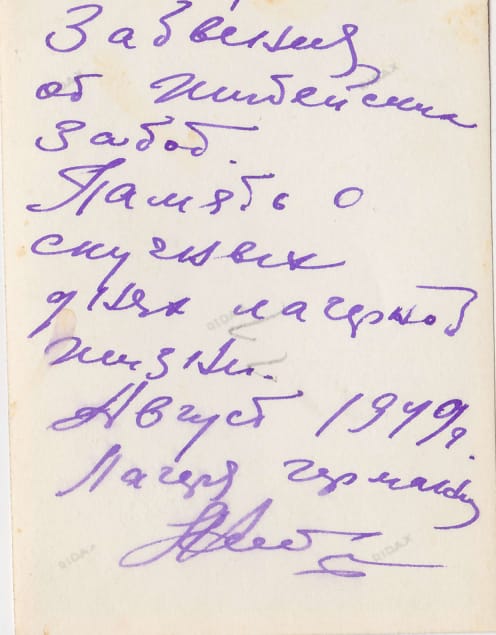 Забвения
от житейских
забот.
Память о
скучных
днях лагерной
жизни.
Август 1949г.
Лагеря Германии
RIDAX
RIDAX
RIDAX
RIDAX